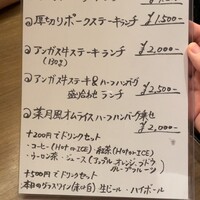 ◎厚切りポークステーキランチ ¥1,500-
◎アンガス牛ステーキランチ ¥2,000-
(150g)
◎アンガス牛ステーキ&ハーフハンバーグ
盛合わせランチ ¥2,500-
◎葉月風オムライス ハーフハンバーグ乗せ
¥2,000-
+200円でドリンクセット
・コーヒー(Hot or ICE)・紅茶(Hot or ICE)
・ウーロン茶・ジュース(アップル,オレンジ,ブドウ
グレープフルーツ)
+500円でドリンクセット
本日のグラスワイン(赤or白) 生ビール・ハイボール